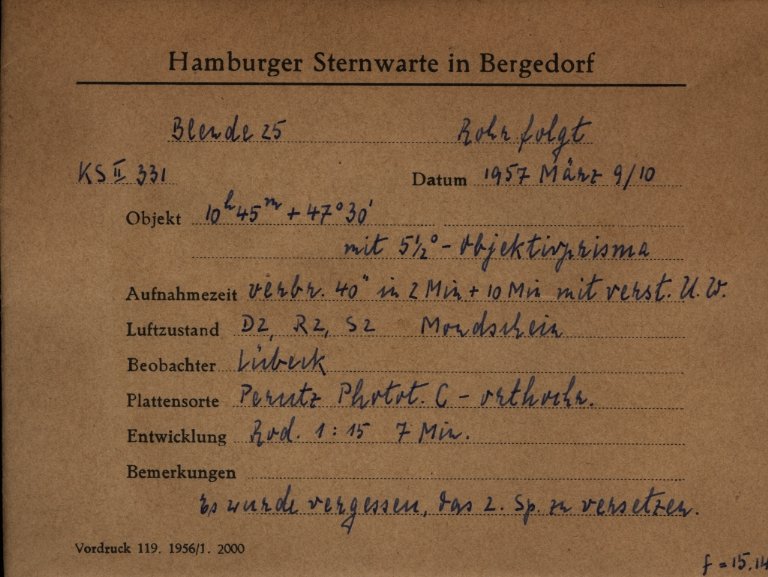 Hamburger Sternwarte in Bergedorf
Blende 25 Rohr folgt
KS II 331 Datum 1957 März 9/10
Objekt 10h 45m + 47° 30'
mit 5½° - Objektivprisma
Aufnahmezeit verbr. 40" in 2 Min + 10 Min mit verst. U.W.
Luftzustand D2, R2, S2 Mondschein
Beobachter Lübeck
Plattensorte Perutz Photot. C - orthochr.
Entwicklung Rod. 1:15 7 Min.
Bemerkungen
Es wurde vergessen, das 2. Sp. zu versetzen.
Vordruck 119. 1956/1. 2000
f = 15.14